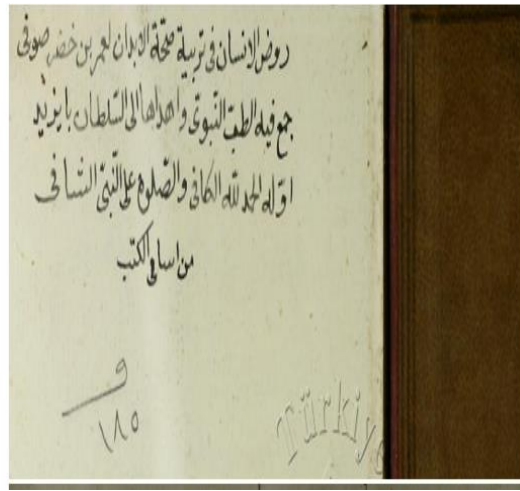 روض الانسان فى تربية صحّة الابدان لعمر بن خضر صوفى
جمع فيه الطبّ النّبوىّ واهداها الى السّلطان بايزيد
اوّله الحمد للّه الكافى والصّلوة على النّبىّ الشافى
من اسامى الكتب
و
١٨٥
Türkiye